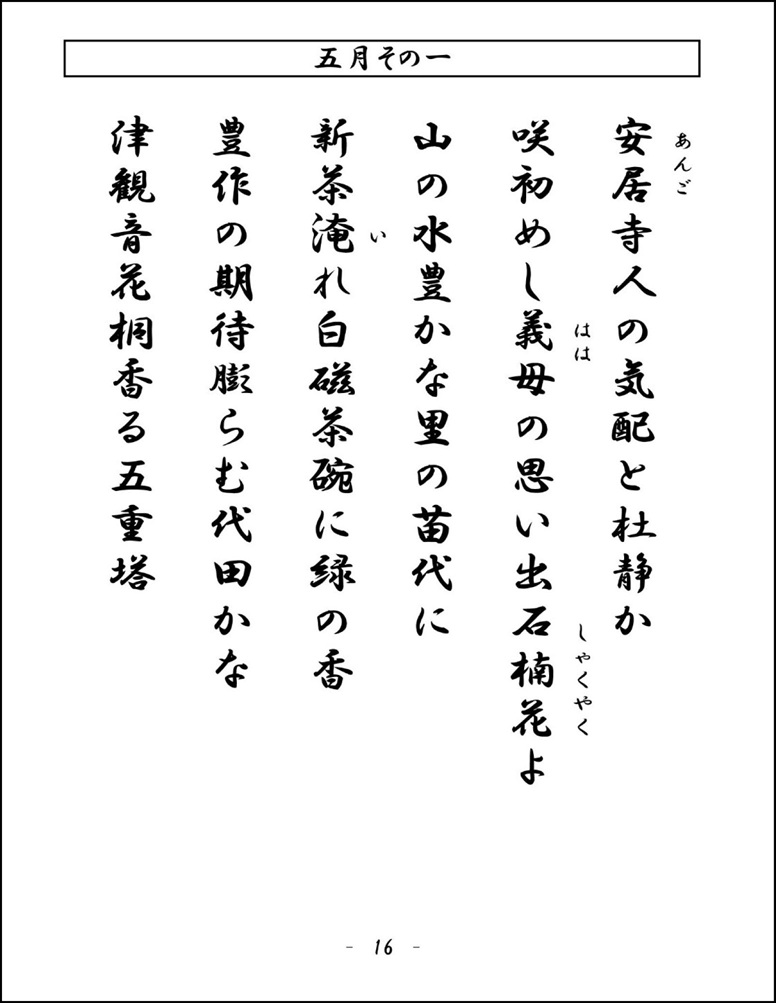 五月その一
あんご
安居寺人の気配と杜静か
はは
しゃくやく
咲初めし義母の思い出石楠花よ
山の水豊かな里の苗代に
い
新茶淹れ白磁茶碗に緑の香
豊作の期待膨らむ代田かな
津観音花桐香る五重塔
- 16 -